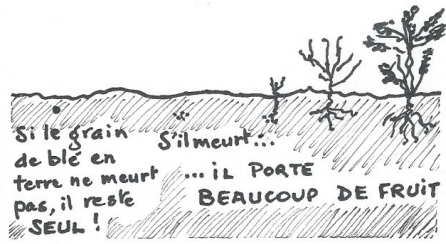 Si le grain
de blé en
terre ne meurt
pas, il reste
SEUL !
S'il meurt...
...iL PORTE
BEAUCOUP DE FRUIT